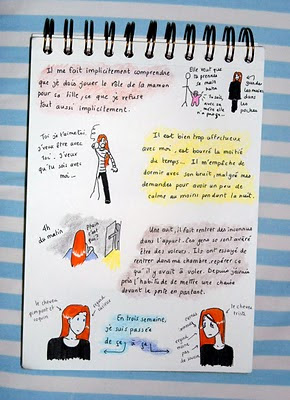 Il me fait implicitement comprendre
que je dois jouer le rôle de la maman
pour sa fille, ce que je refuse
tout aussi implicitement.
Elle veut que
tu prennes
sa main
Toi je t'aime toi.
J'veux être avec
toi. J'veux
qu'tu sois avec
moi...
Il est bien trop affectueux
avec moi, est bourré la moitié
du temps... Il m'empêche de
dormir avec son bruit, malgré mes
demandes pour avoir un peu de
calme au moins pendant la nuit.
4h
du matin
Une nuit, il fait rentrer des inconnus
dans l'appart. Ces gens se sont avéré
être des voleurs. Ils ont essayé de
rentrer dans ma chambre, repérer ce
qu'il y avait à voler. Depuis j'avais
pris l'habitude de mettre une chaise
devant la porte en partant.
le cheveu
pimpant et
coquin
En trois semaines,
je suis passée
de ça à ça
le cheveu
triste